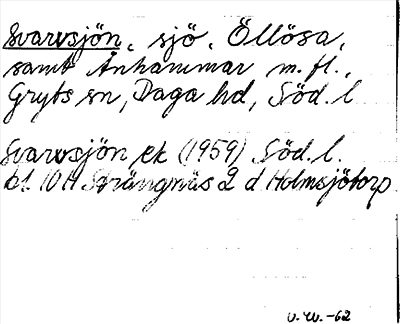 Svarvsjön, sjö, Öllösa,
samt Ånhammar m.fl.,
Gryts sn, Daga hd, Söd. l.
Svarvsjön ek (1959) Söd. l.
bl. 10 H Strängnäs 2 d Holmsjötorp
U.W. -62